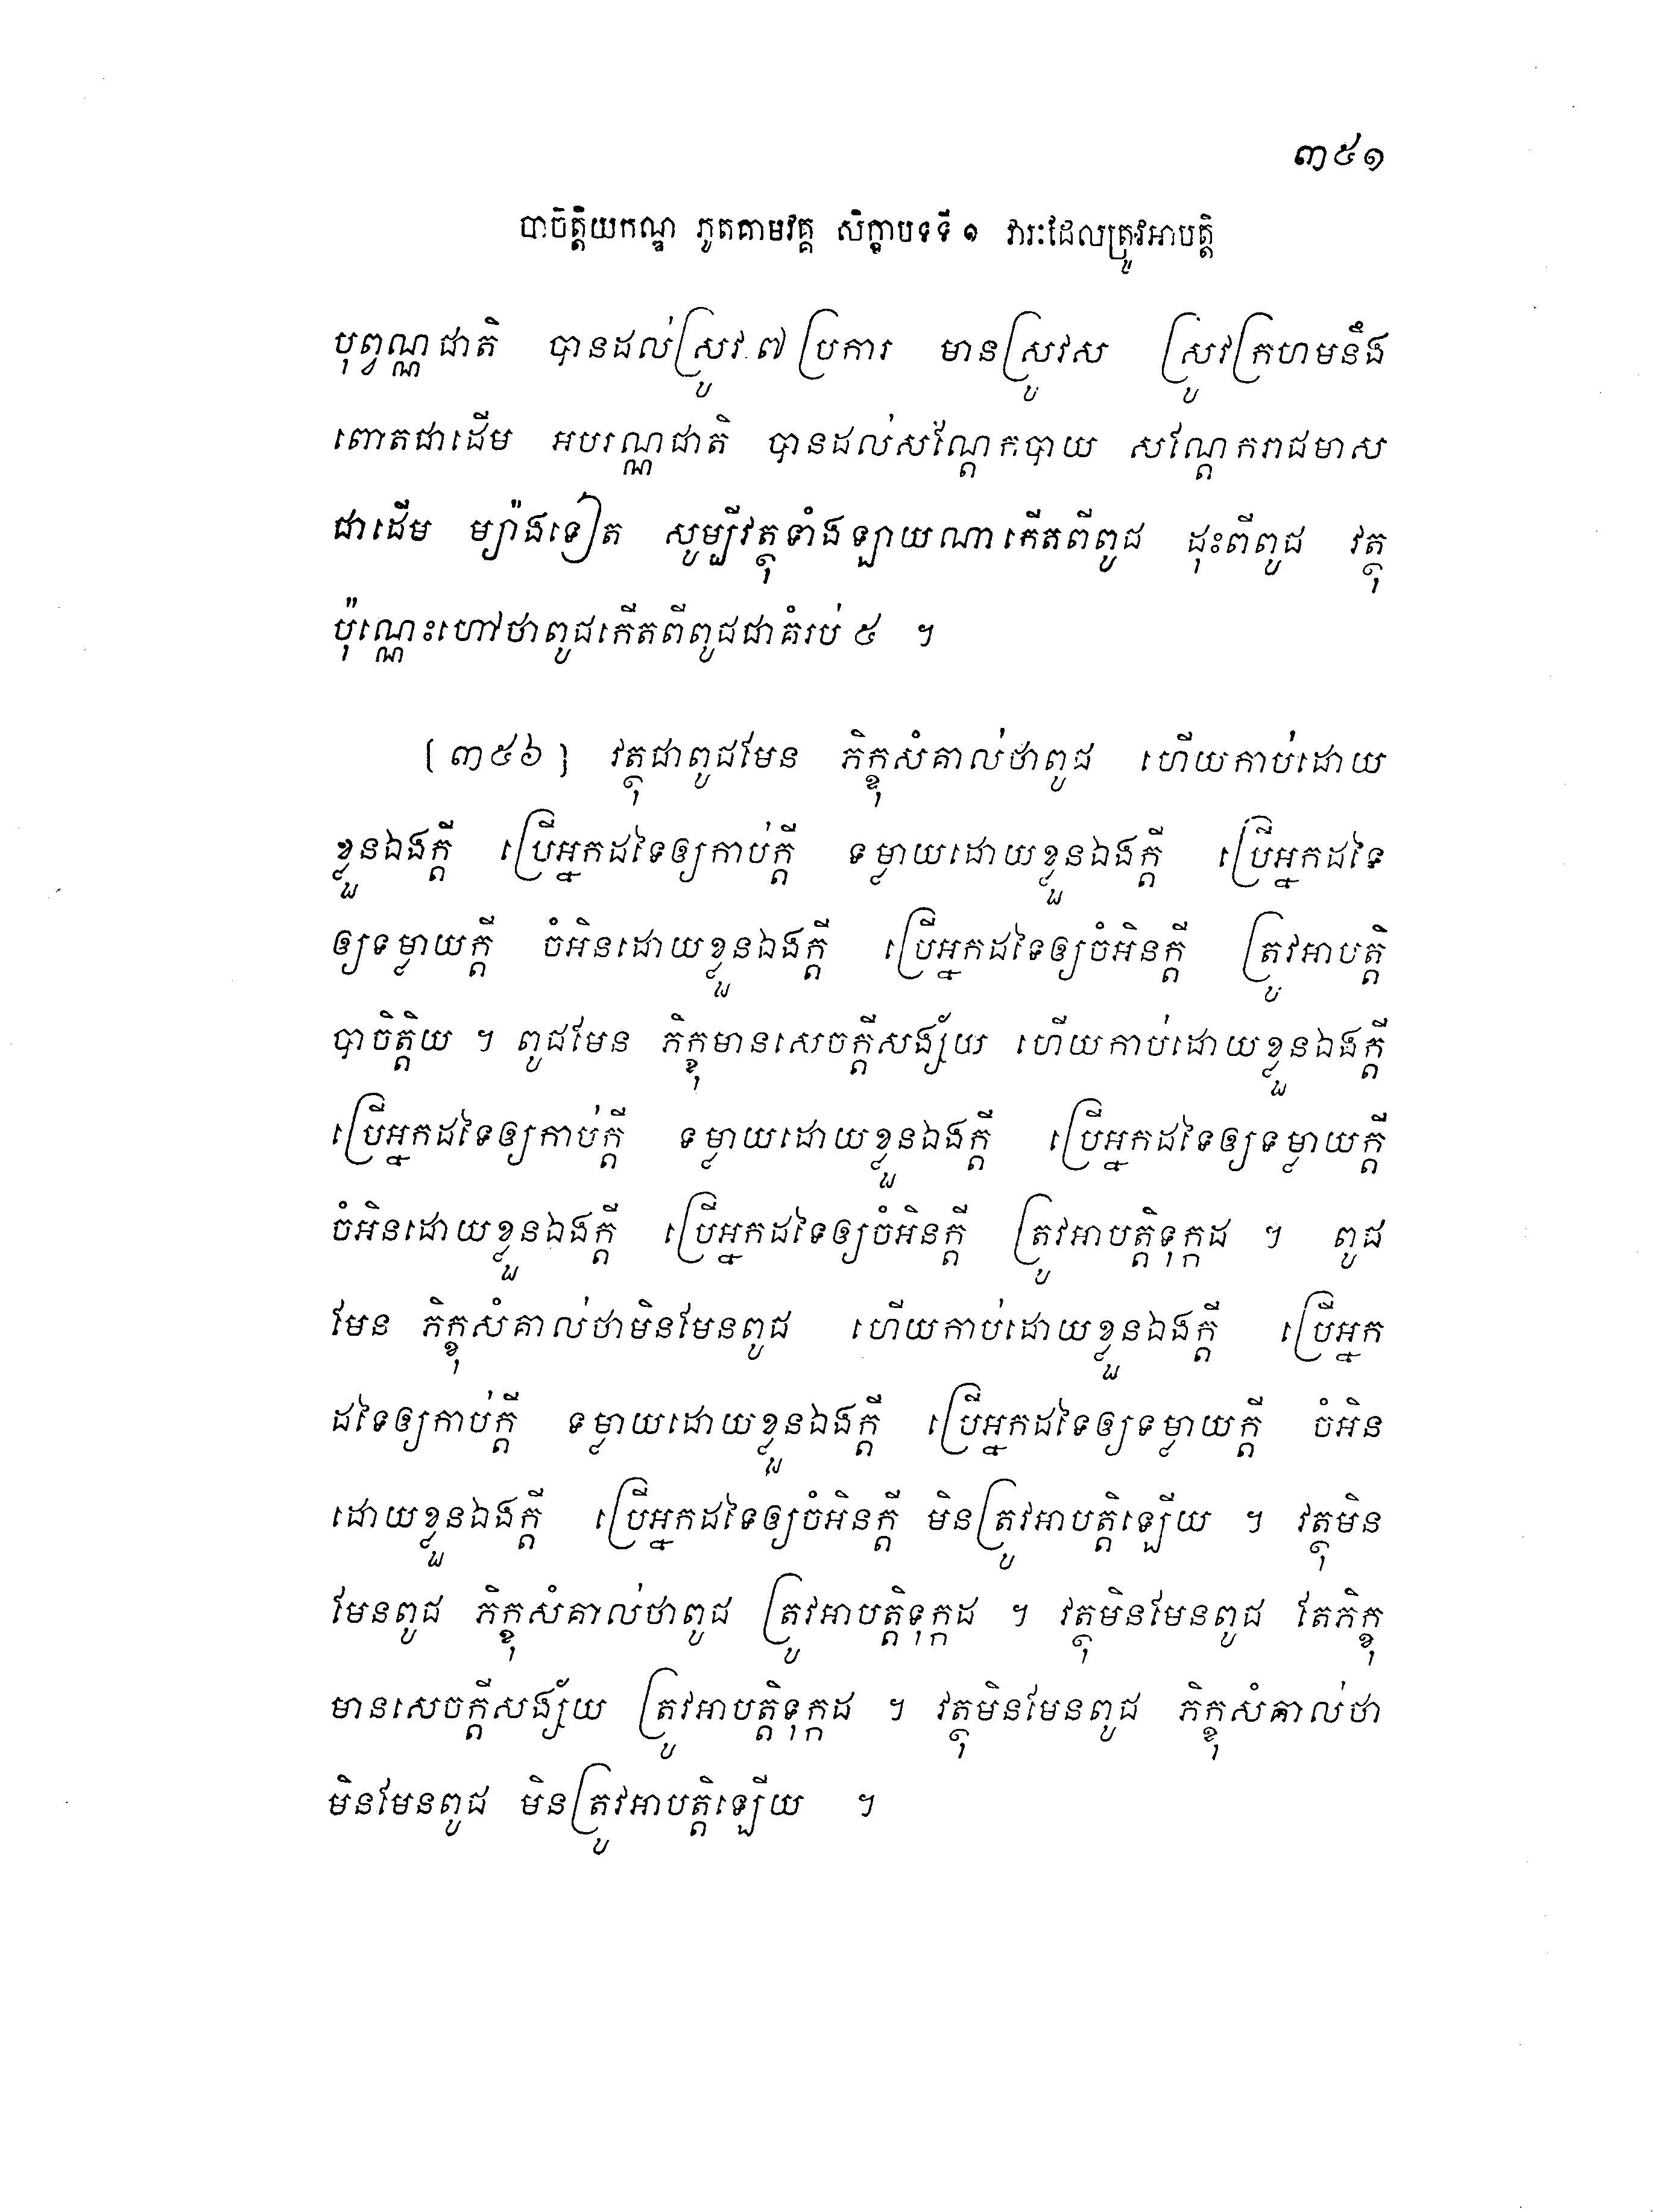 ៣៥១
បាចិត្តិយកណ្ឌ ភូតគាមវគ្គ សិក្ខាបទទី ១ វារៈដែលត្រូវអាបត្តិ
បុព្វណ្ណជាតិ បានដល់ស្រូវ ៧ ប្រការ មានស្រូវស ស្រូវក្រហមនឹង
ពោតជាដើម អបរណ្ណជាតិ បានដល់សណ្តែកបាយ សណ្តែករាជមាស
ជាដើម ម្យ៉ាងទៀត សូម្បីវត្ថុទាំងឡាយណាកើតពីពូជ ដុះពីពូជ វត្ថុ
ប៉ុណ្ណេះហៅថាពូជកើតពីពូជជាគំរប់ ៥ ។
[៣៥៦] វត្ថុជាពូជមែន ភិក្ខុសំគាល់ថាពូជ ហើយកាប់ដោយ
ខ្លួនឯងក្តី ប្រើអ្នកដទៃឲ្យកាប់ក្តី ទម្លាយដោយខ្លួនឯងក្តី ប្រើអ្នកដទៃ
ឲ្យទម្លាយក្តី ចំអិនដោយខ្លួនឯងក្តី ប្រើអ្នកដទៃឲ្យចំអិនក្តី ត្រូវអាបត្តិ
បាចិត្តិយ ។ ពូជមែន ភិក្ខុមានសេចក្តីសង្ស័យ ហើយកាប់ដោយខ្លួនឯងក្តី
ប្រើអ្នកដទៃឲ្យកាប់ក្តី ទម្លាយដោយខ្លួនឯងក្តី ប្រើអ្នកដទៃឲ្យទម្លាយក្តី
ចំអិនដោយខ្លួនឯងក្តី ប្រើអ្នកដទៃឲ្យចំអិនក្តី ត្រូវអាបត្តិទុក្កដ ។ ពូជ
មែន ភិក្ខុសំគាល់ថាមិនមែនពូជ ហើយកាប់ដោយខ្លួនឯងក្តី ប្រើអ្នក
ដទៃឲ្យកាប់ក្តី ទម្លាយដោយខ្លួនឯងក្តី ប្រើអ្នកដទៃឲ្យទម្លាយក្តី ចំអិន
ដោយខ្លួនឯងក្តី ប្រើអ្នកដទៃឲ្យចំអិនក្តី មិនត្រូវអាបត្តិឡើយ ។ វត្ថុមិន
មែនពូជ ភិក្ខុសំគាល់ថាពូជ ត្រូវអាបត្តិទុក្កដ ។ វត្ថុមិនមែនពូជ តែភិក្ខុ
មានសេចក្តីសង្ស័យ ត្រូវអាបត្តិទុក្កដ ។ វត្ថុមិនមែនពូជ ភិក្ខុសំគាល់ថា
មិនមែនពូជ មិនត្រូវអាបត្តិឡើយ ។